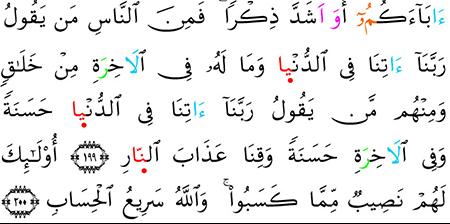 ءَابَآءَكُمُۥٓ أَوَ اَشَدَّ ذِكْرًاۖ فَمِنَ ٱلنَّاسِ مَن يَقُولُ
رَبَّنَآ ءَاتِنَا فِى ٱلدُّنْيا وَمَا لَهُۥ فِى ٱلَاخِرَةِ مِنْ خَلَٰقٍ
وَمِنْهُم مَّن يَقُولُ رَبَّنَآ ءَاتِنَا فِى ٱلدُّنْيا حَسَنَةً
وَفِى ٱلَاخِرَةِ حَسَنَةً وَقِنَا عَذَابَ ٱلنّارِ ١٩٩ أُوْلَٰٓئِكَ
لَهُمْ نَصِيبٌ مِّمَّا كَسَبُوا۟ۚ وَٱللَّهُ سَرِيعُ ٱلْحِسَابِ ٢٠٠